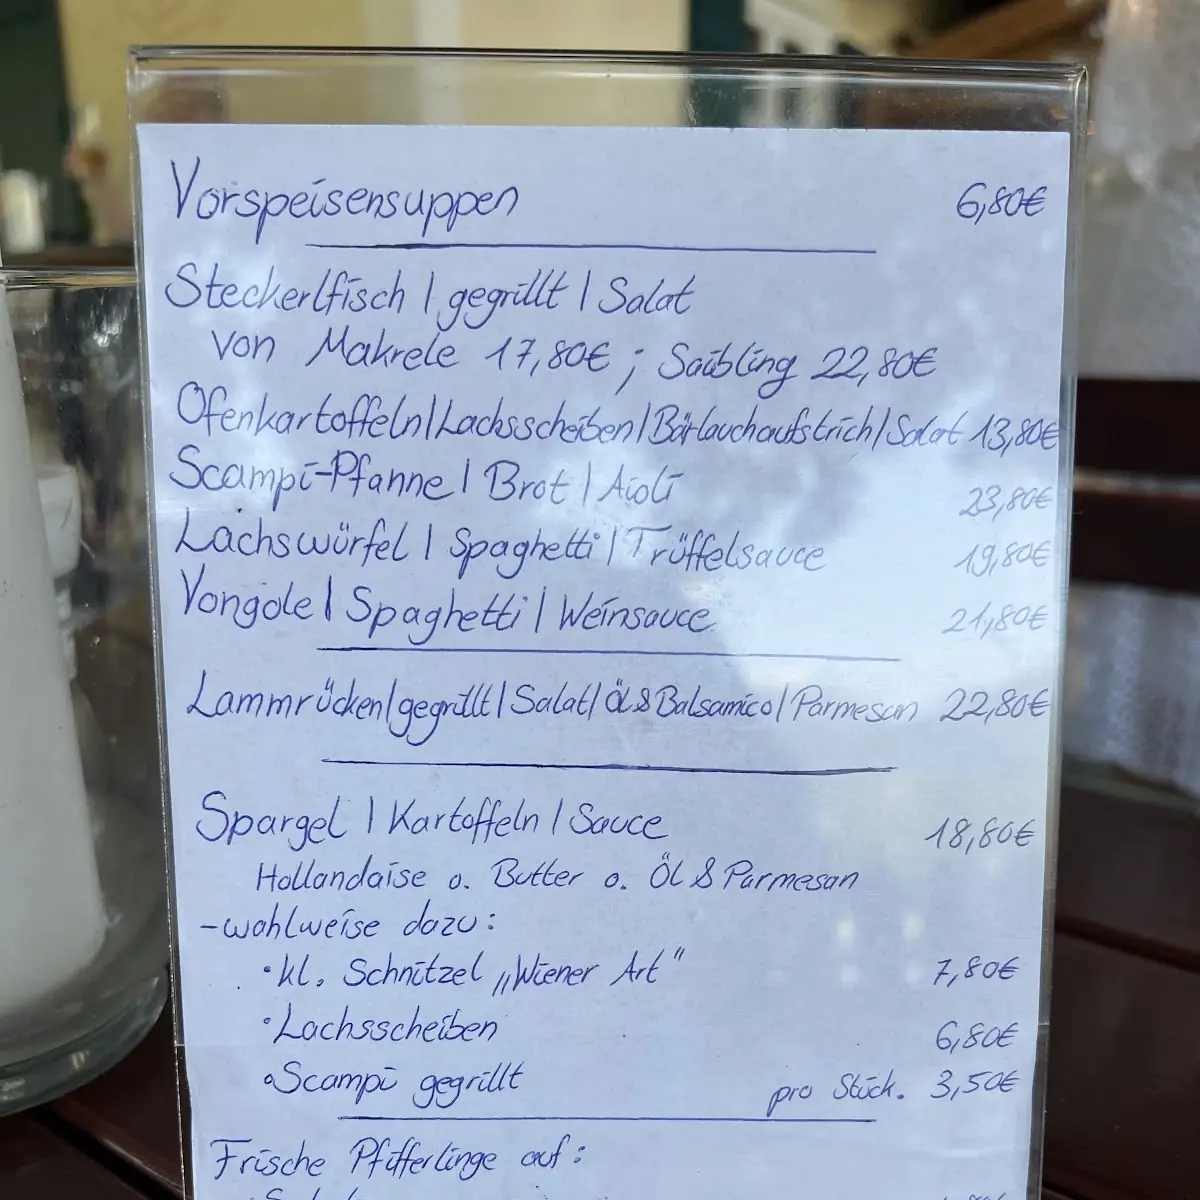 Vorspeisensuppen 6,80€
Steckerlfisch | gegrillt | Salat
von Makrele 17,80€ ; Saibling 22,80€
Ofenkartoffeln | Lachsscheiben | Bärlauchaufstrich | Salat 13,80€
Scampi-Pfanne | Brot | Aioli 23,80€
Lachswürfel | Spaghetti | Trüffelsauce 19,80€
Vongole | Spaghetti | Weinsauce 21,80€
Lammrücken | gegrillt | Salat | Öl & Balsamico | Parmesan 22,80€
Spargel | Kartoffeln | Sauce 18,80€
Hollandaise o. Butter o. Öl & Parmesan
-wahlweise dazu:
• kl. Schnitzel „Wiener Art“ 7,80€
• Lachsscheiben 6,80€
• Scampi gegrillt pro Stück. 3,50€
Frische Pfifferlinge auf: